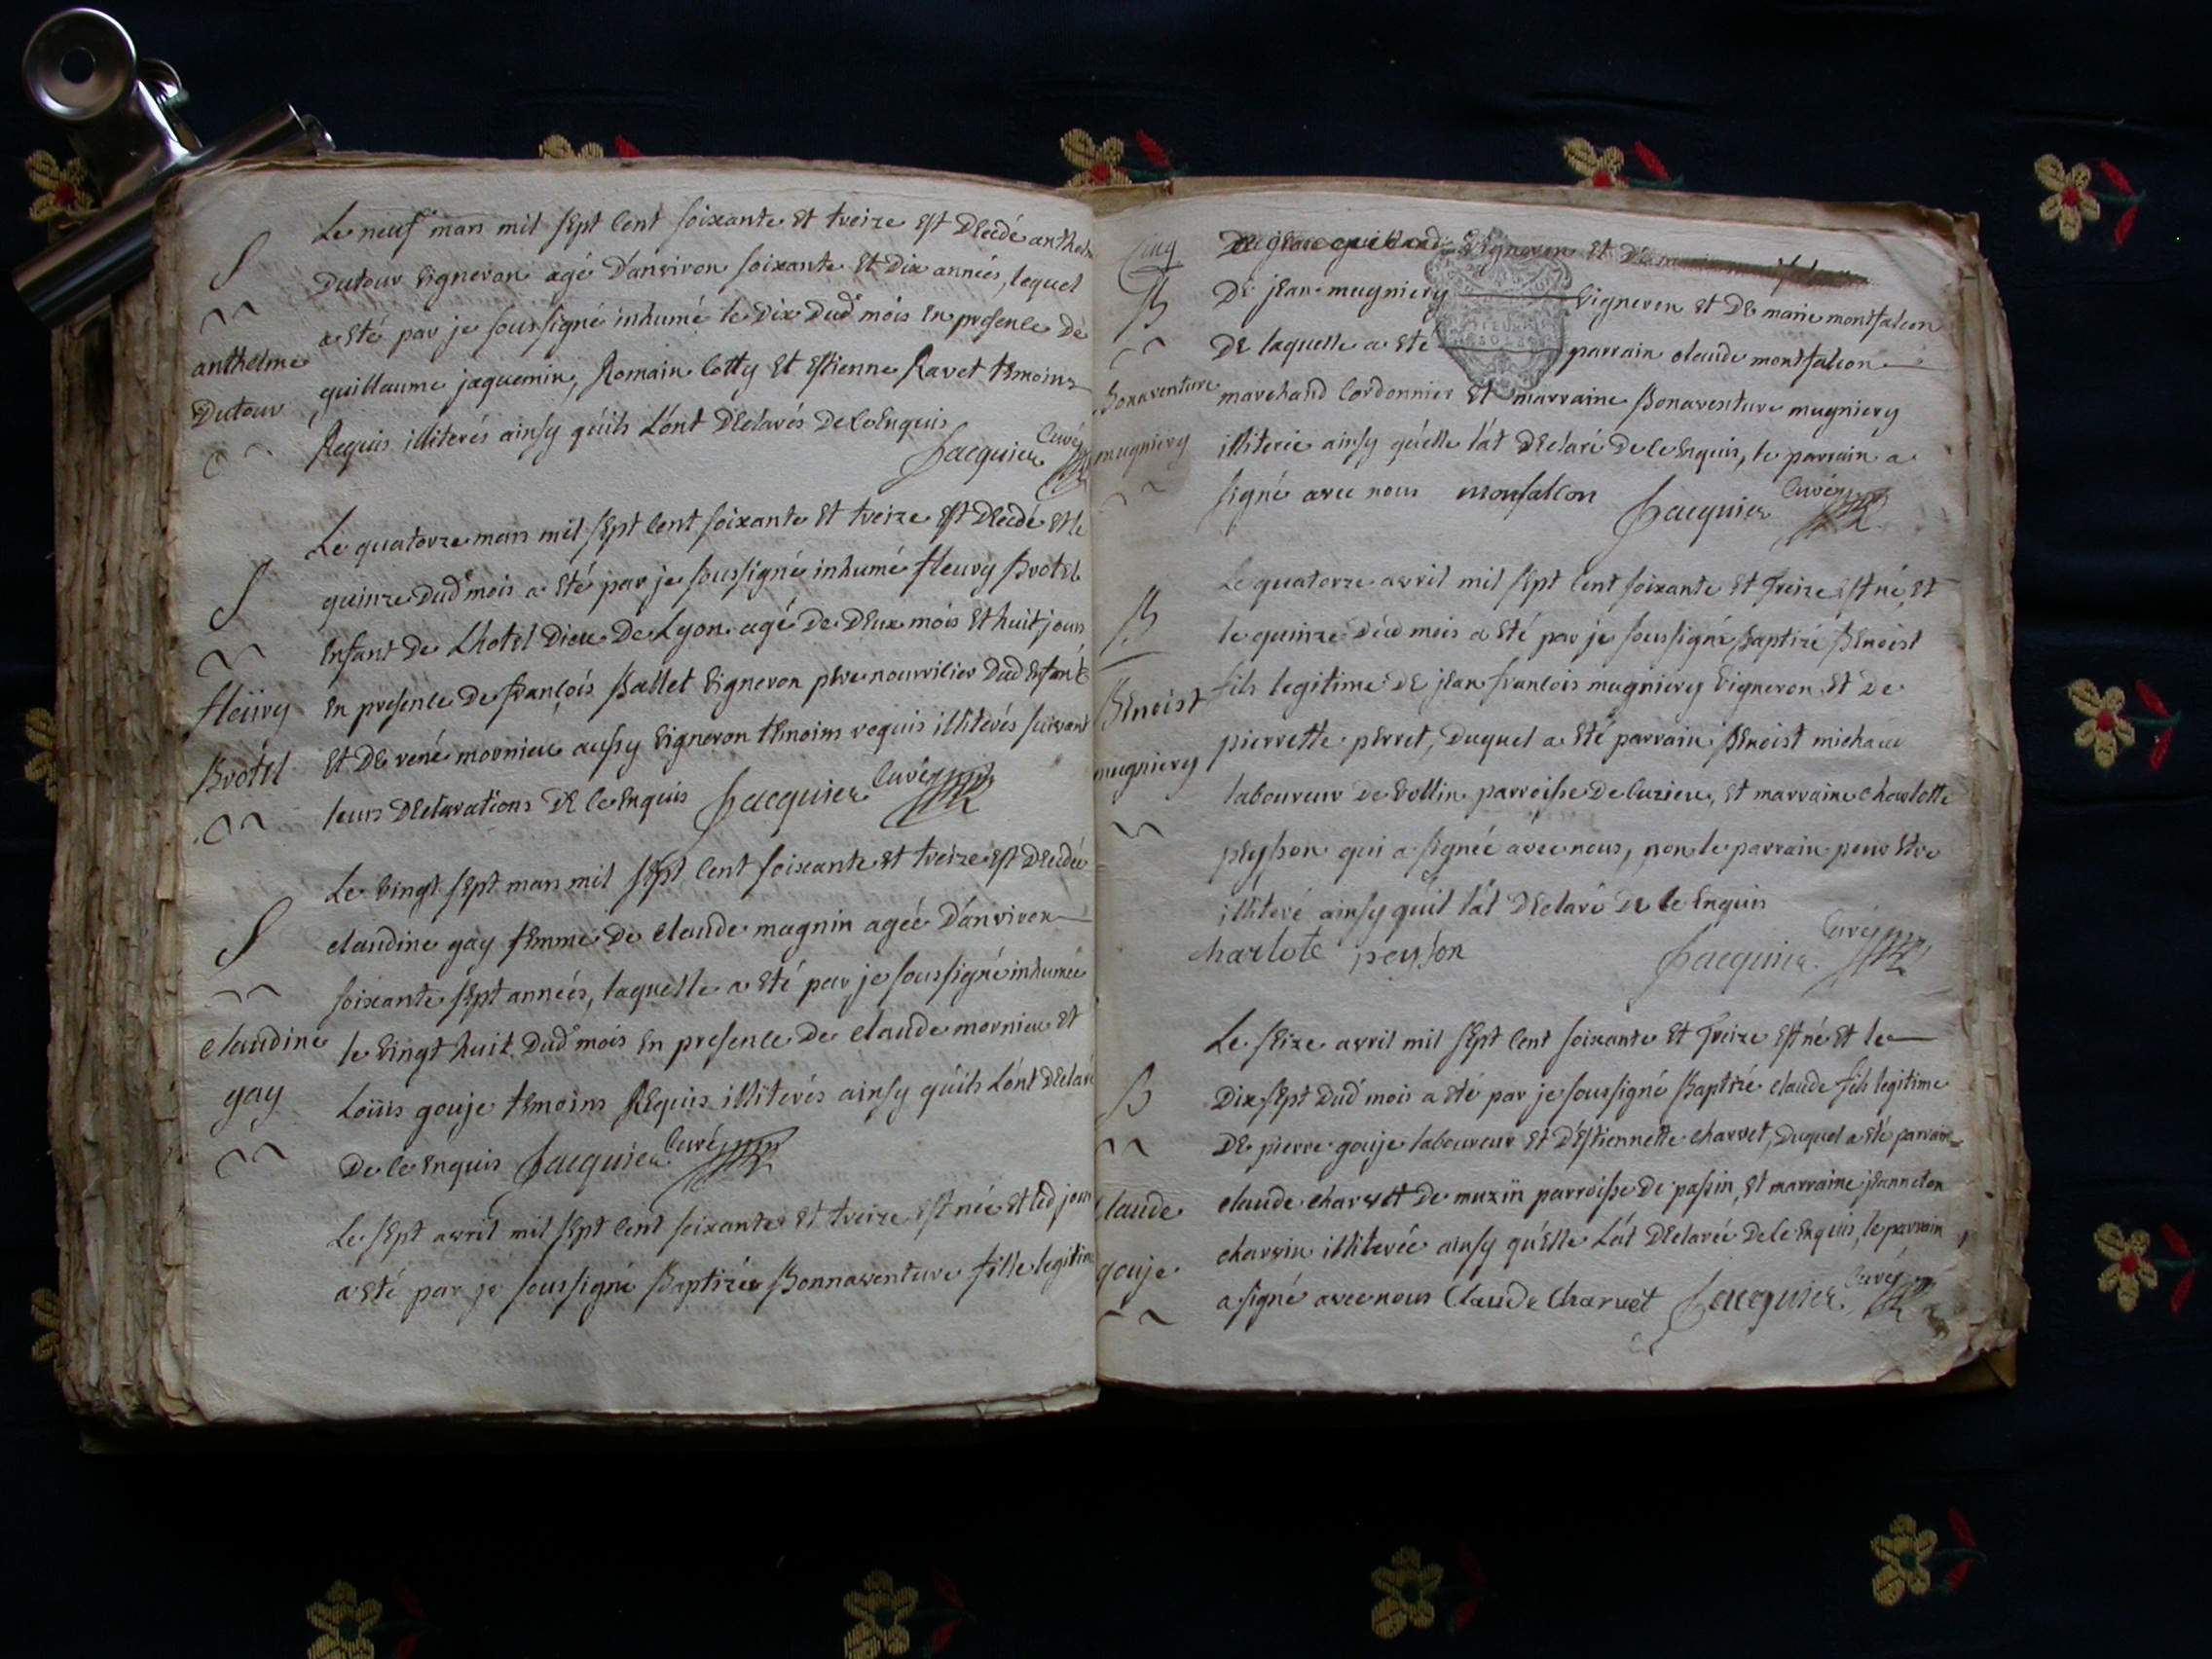 Le neuf mars mil sept cent soixante et treize est decedé anthelme
S
dutour vigneron agé d'anviron soixante et dix années, lequel
a eté par je soussigné inhumé le dix dud mois en presence de
anthelme
guillaume jaquemin, Romain Cotty et Estienne Ravet temoins
Dutour
Requis illiterés ainsy qu'ils l'ont declarés de ce Enquis
Jacquier Curé
Le quatorze mars mil sept cent soixante et treize est decedé et le
S
quinze dud mois a eté par je soussigné inhumé fleury Brotel
enfant de Lhotel Dieu de Lyon agé de deux mois et huit jours
fleury
en presence de françois Ballet vigneron pere nourricier dud enfant
Brotel
et de rené mornieu aussy vigneron temoins requis illiterés suivant
leurs declarations de ce enquis Jacquier Curé
Le vingt sept mars mil sept cent soixante et treize est decedée
S
claudine gay femme de claude magnin agée d'anviron
soixante sept années, laquelle a eté par je soussigné inhumée
claudine
le vingt huit dud mois en presence de claude mornieu et
gay
Loüis gouje temoins Requis illiterés ainsy qu'ils l'ont declaré
de ce enquis Jacquier Curé
Le sept avril mil sept cent soixante et treize est née et led jour
a eté par je soussigné Baptizée Bonnaventure fille legitime
Cinq
vigneron et de
B
De jean mugniery vigneron et de marie montfalcon
de laquelle a ete parrain claude montfalcon
Bonaventure
marchand Cordonnier et marraine Bonaventure mugniery
mugniery
illiterée ainsy qu'elle l'at declaré de ce enquis, le parrain a
signé avec nous monfalcon Jacquier Curé
Le quatorze avril mil sept cent soixante et Treize est né, et
B
le quinze dud mois a eté par je soussigné Baptizé Benoist
Benoist
fils legitime de jean françois mugniery vigneron et de
pierrette perret, duquel a eté parrain Benoist michaux
mugniery
laboureur de vollin parroisse de Cuzieu, et marraine charlotte
peysson qui a signée avec nous, non le parrain pour etre
illiteré ainsy qu'il l'at declaré de ce Enquis
charlote peyson Jacquier Curé
Le seize avril mil sept cent soixante et Treize est né et le
B
dix sept dud mois a eté par je soussigné Baptizé claude fils legitime
de pierre gouje laboureur et d'Estiennette charvet, duquel a eté parrain
claude
claude charvet de muzin parroisse de passin, et marraine jeanneton
gouje
charvin illiterée ainsy qu'elle l'at declarée de ce enquis, le parrain
a signé avec nous Claude Charvet Jacquier Curé